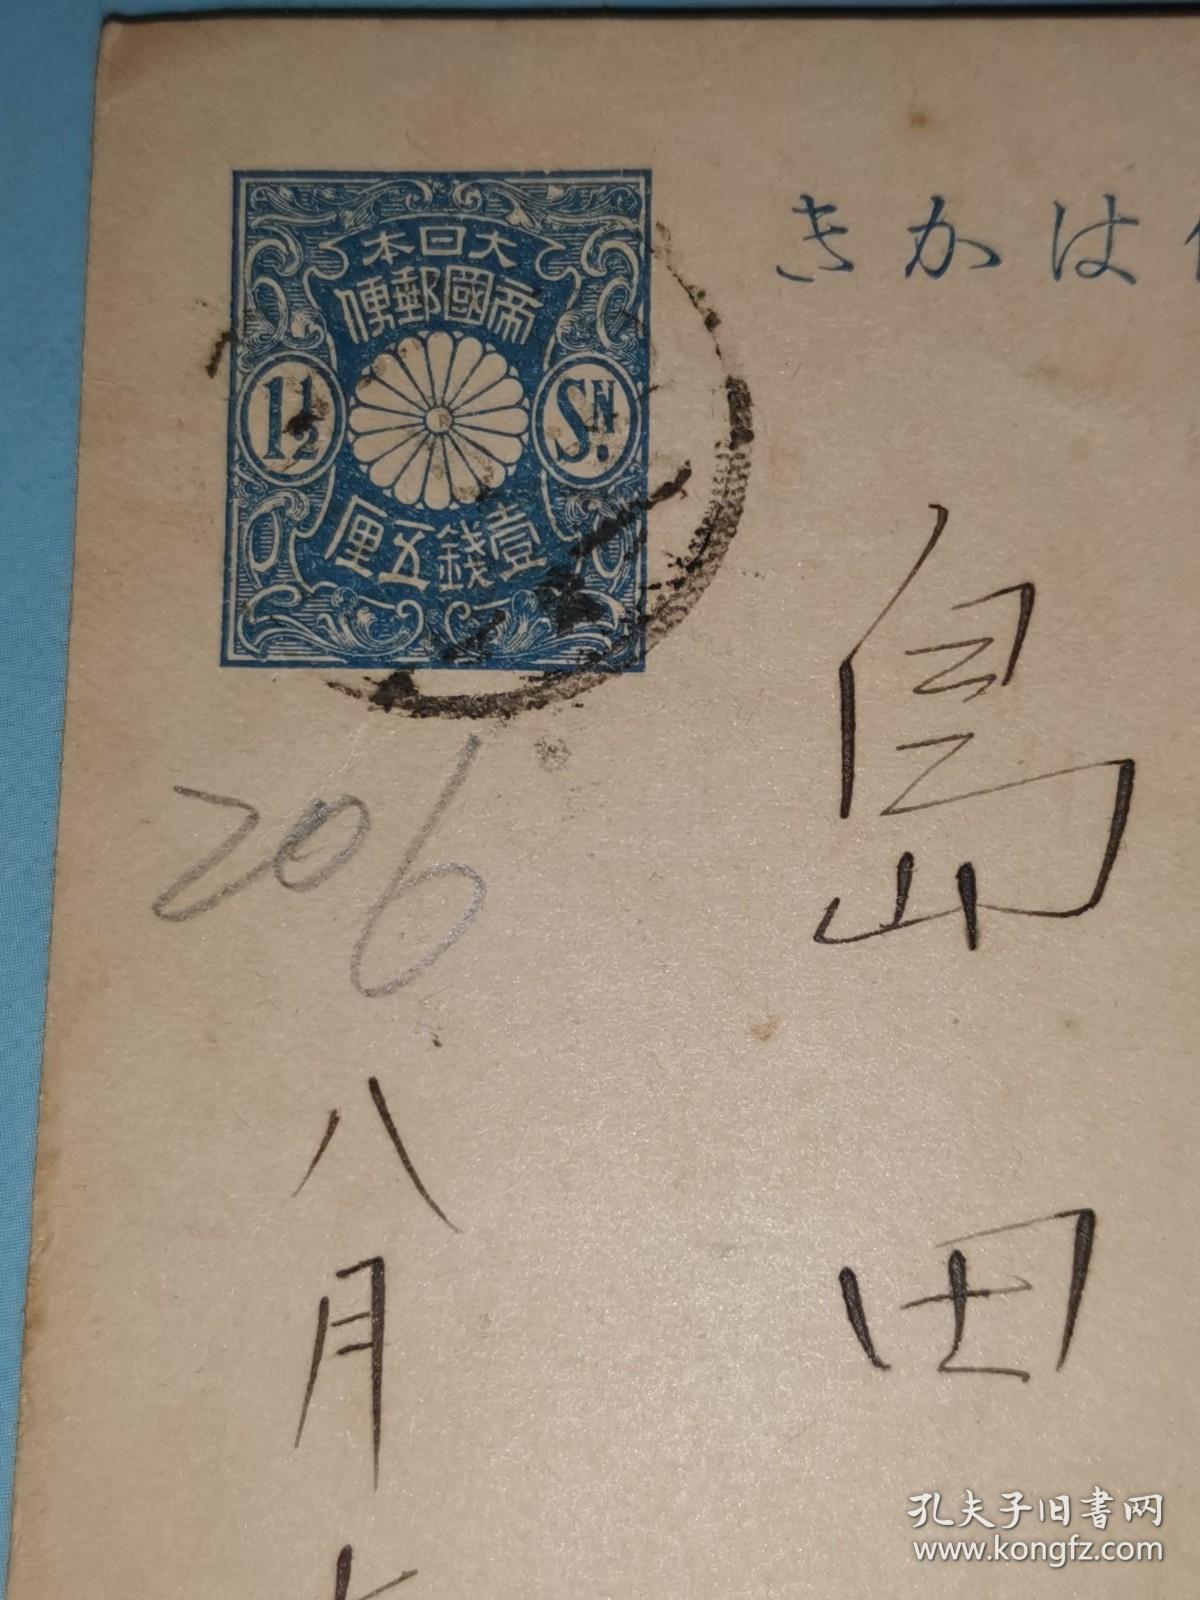 きかは
大日本
帝國郵便
1½
SN.
壹錢五厘
島田
206
八月
孔夫子旧书网
www.kongfz.com